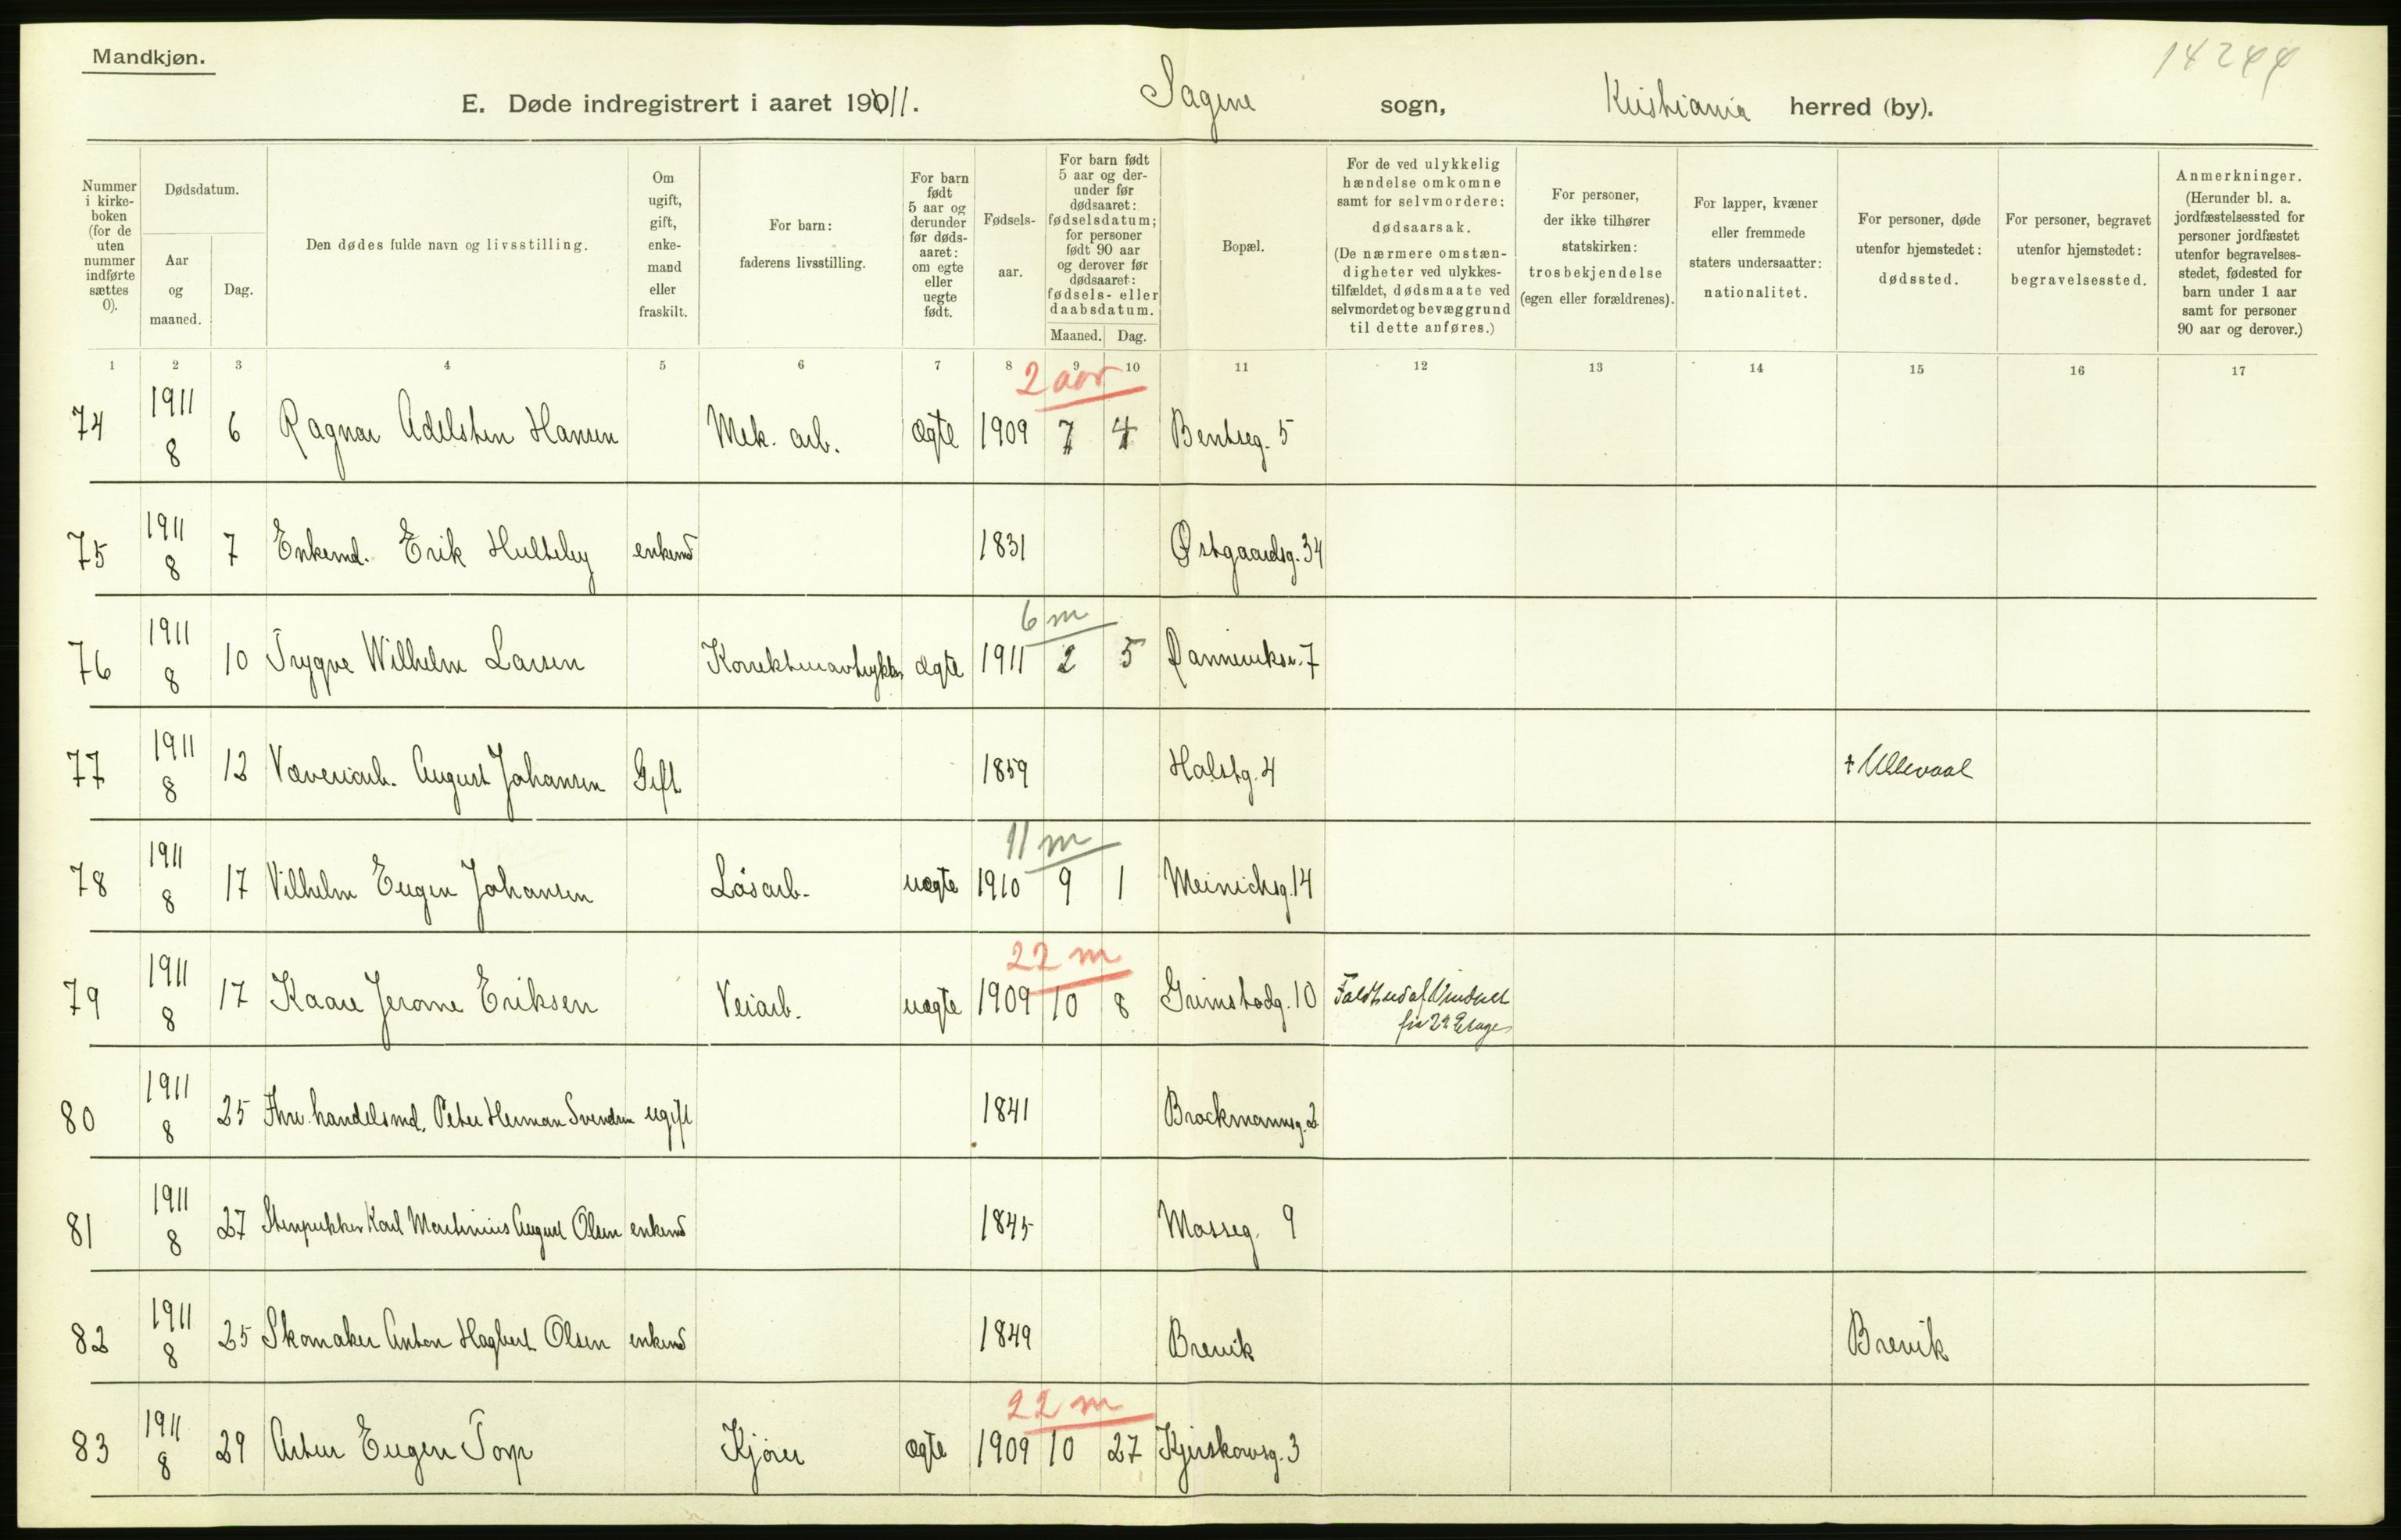 Mandkjøn.
14244
E. Døde indregistrert i aaret 1911. Sagene sogn, Kristiania herred (by).
Nummer i kirke-boken (for de uten nummer indførte sættes 0).
Dødsdatum.
Aar og maaned.
Dag.
Den dødes fulde navn og livsstilling.
Om ugift, gift, enke-mand eller fraskilt.
For barn: faderens livsstilling.
For barn født 5 aar og derunder før døds-aaret: om egte eller uegte født.
Fødsels-aar.
For barn født 5 aar og der-under før dødsaaret: fødselsdatum; for personer født 90 aar og derover før dødsaaret: fødsels- eller daabsdatum.
Maaned. Dag.
Bopæl.
For de ved ulykkelig hændelse omkomne samt for selvmordere: dødsaarsak. (De nærmere omstæn-digheter ved ulykkes-tilfældet, dødsmaate ved selvmordet og bevæggrund til dette anføres.)
For personer, der ikke tilhører statskirken: trosbekjendelse (egen eller forældrenes).
For lapper, kvæner eller fremmede staters undersaatter: nationalitet.
For personer, døde utenfor hjemstedet: dødssted.
For personer, begravet utenfor hjemstedet: begravelsessted.
Anmerkninger. (Herunder bl. a. jordfæstelsessted for personer jordfæstet utenfor begravelses-stedet, fødested for barn under 1 aar samt for personer 90 aar og derover.)
1 2 3 4 5 6 7 8 9 10 11 12 13 14 15 16 17
2 aar
74 1911 8 6 Ragnar Adelsten Hansen Mek. arb. ægte 1909 7 4 Bentseg. 5
75 1911 8 7 Enkemd. Erik Hulteby enkemd 1831 Østgaardsg. 34
6 m
76 1911 8 10 Trygve Wilhelm Larsen ægte 1911 2 5 Danneviksv. 7
77 1911 8 12 Væveriarb. August Johansen Gift 1859 Holstg. 4 + Ullevaal
11 m
78 1911 8 17 Vilhelm Eugen Johansen Løsarb. uægte 1910 9 1 Meinichsg. 14
22 m
79 1911 8 17 Kaare Jerome Eriksen Veiarb. uægte 1909 10 8 Grimstadg. 10 Faldt ud af Vinduet
fra 2. Etage
80 1911 8 25 Fhv. handelsmd. Peter Herman Svendsen ugift 1841 Brockmannsg. 2
81 1911 8 27 Stenpukker Karl Martinius August Olsen enkemd 1845 Mosseg. 9
82 1911 8 25 Skomaker Anton Hagbert Olsen enkemd 1849 Brevik Brevik
22 m
83 1911 8 29 Artur Eugen Torp Kjører ægte 1909 10 27 Kjerskowsg. 3